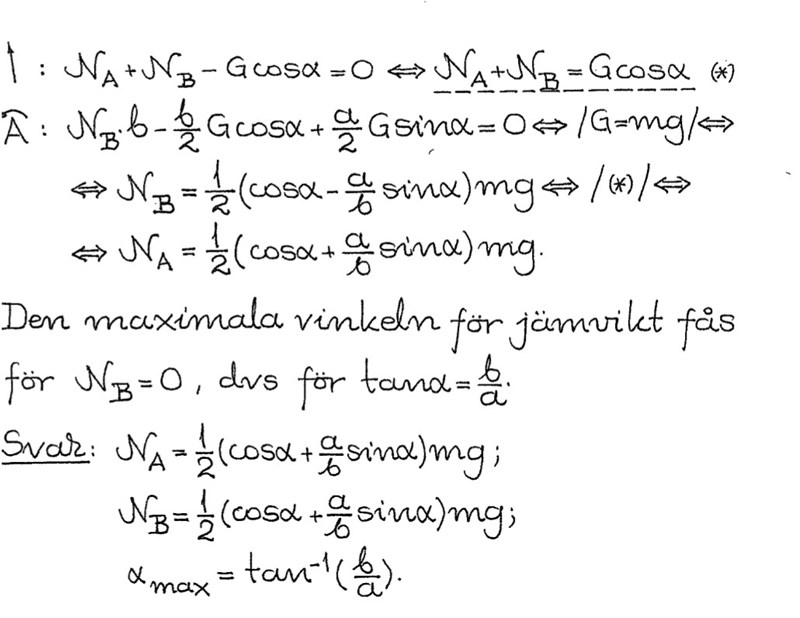 ↑ : N_A + N_B − G cosα = 0 ⇔ N_A + N_B = G cosα (*)
A : N_B · b − b/2 G cosα + a/2 G sinα = 0 ⇔ /G = mg/ ⇔
⇔ N_B = 1/2 (cosα − a/b sinα) mg ⇔ /(*)/ ⇔
⇔ N_A = 1/2 (cosα + a/b sinα) mg.
Den maximala vinkeln för jämvikt fås
för N_B = 0, dvs för tanα = b/a.
Svar: N_A = 1/2 (cosα + a/b sinα) mg;
N_B = 1/2 (cosα + a/b sinα) mg;
α_max = tan⁻¹(b/a).